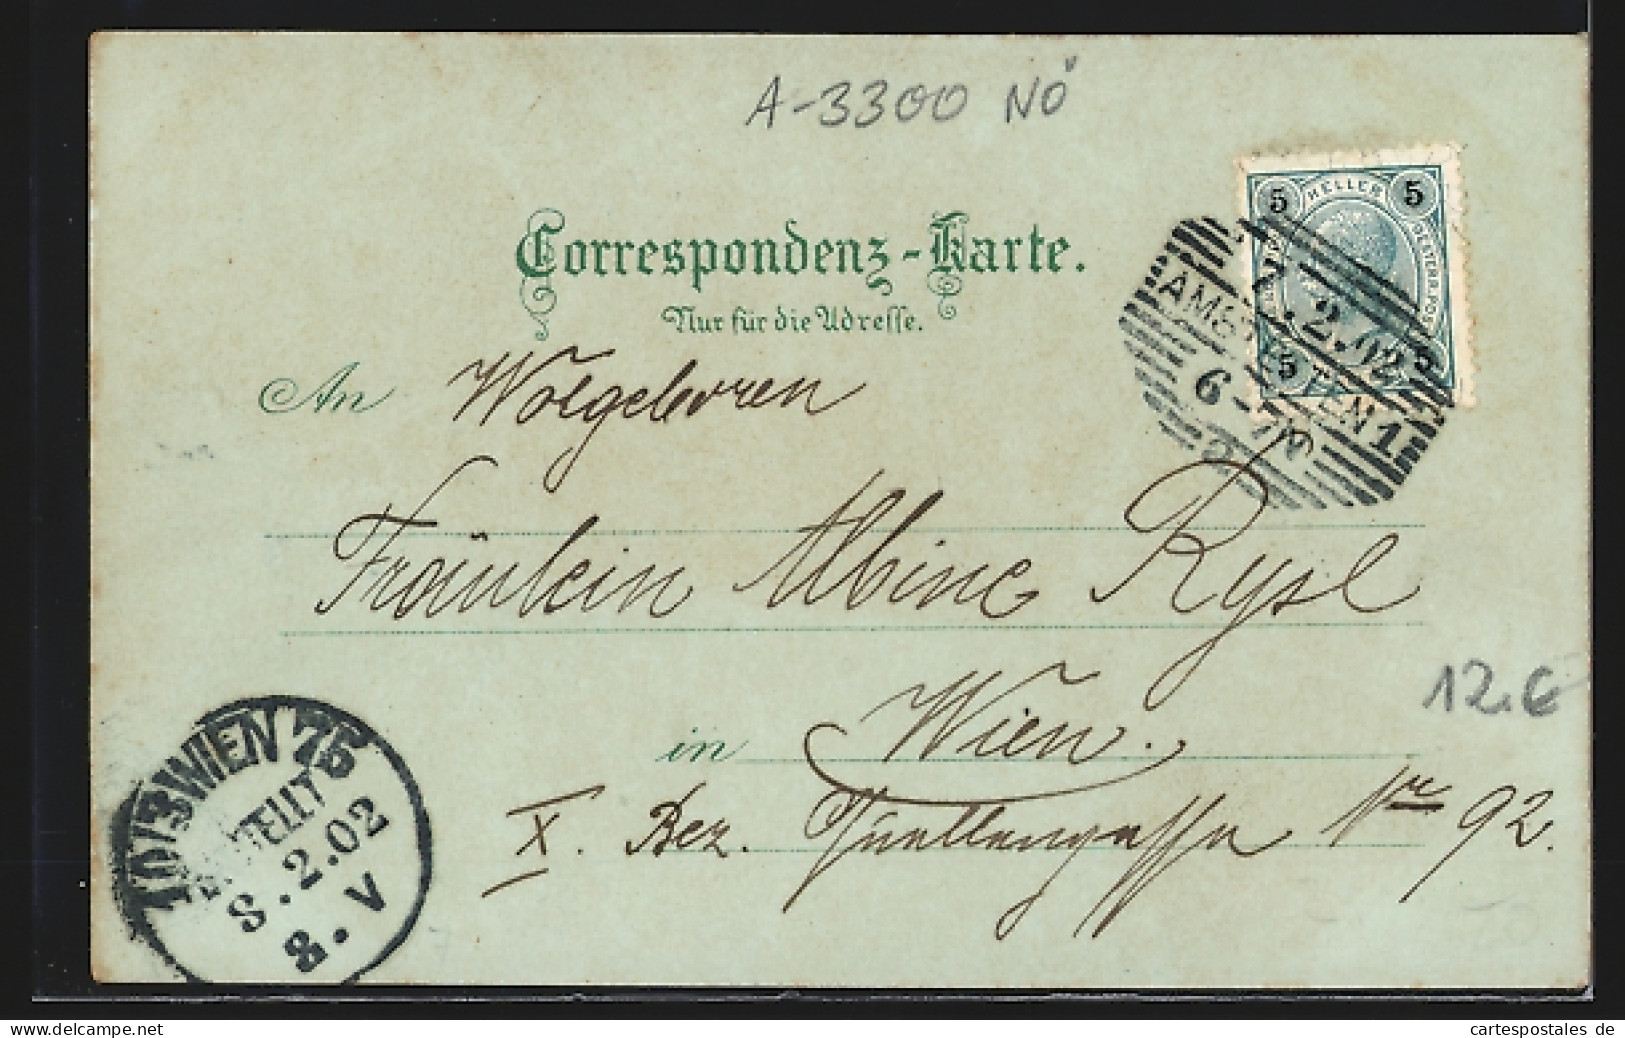 A-3300 NÖ
5 HELLER 5
5 5
AMSTETTEN 1
7.2.02
6-7N
Correspondenz-Karte.
Nur für die Adresse.
An Wolgeboren
Fräulein Albine Rysl
12.€
in Wien.
X. Bez. Quellengasse Nr 92.
10/3 WIEN 75
BESTELLT
8.2.02
8. V
delcampe.net
cartespostales de